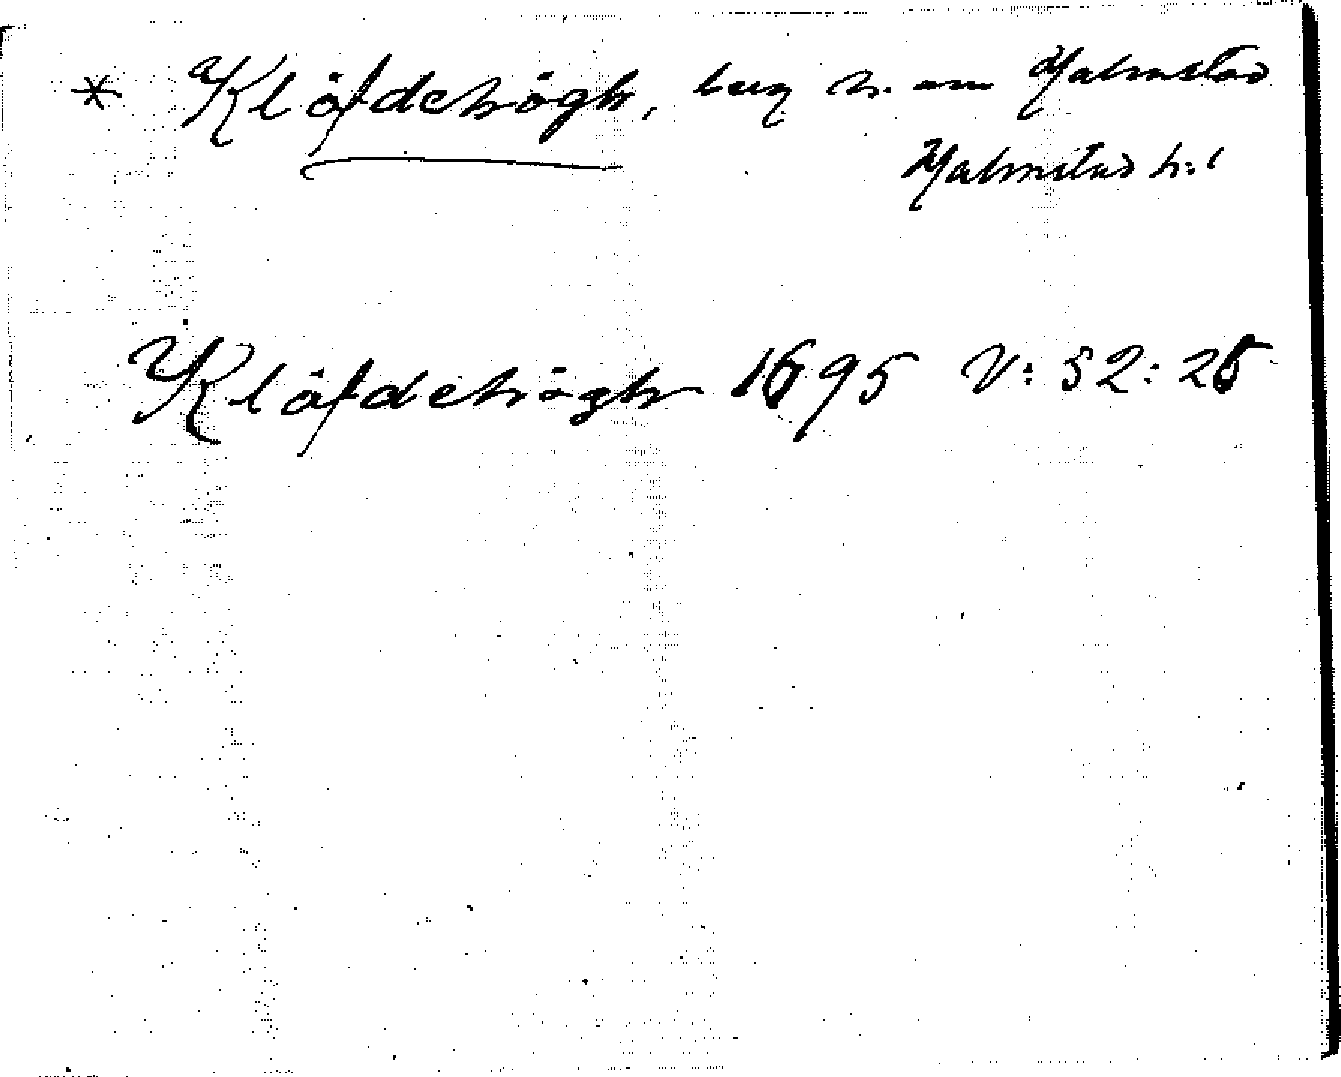 * Klöfdehögh, bug n. om Halmstad
Halmstad h:d
Klöfdehögh 1695 V: 52: 25